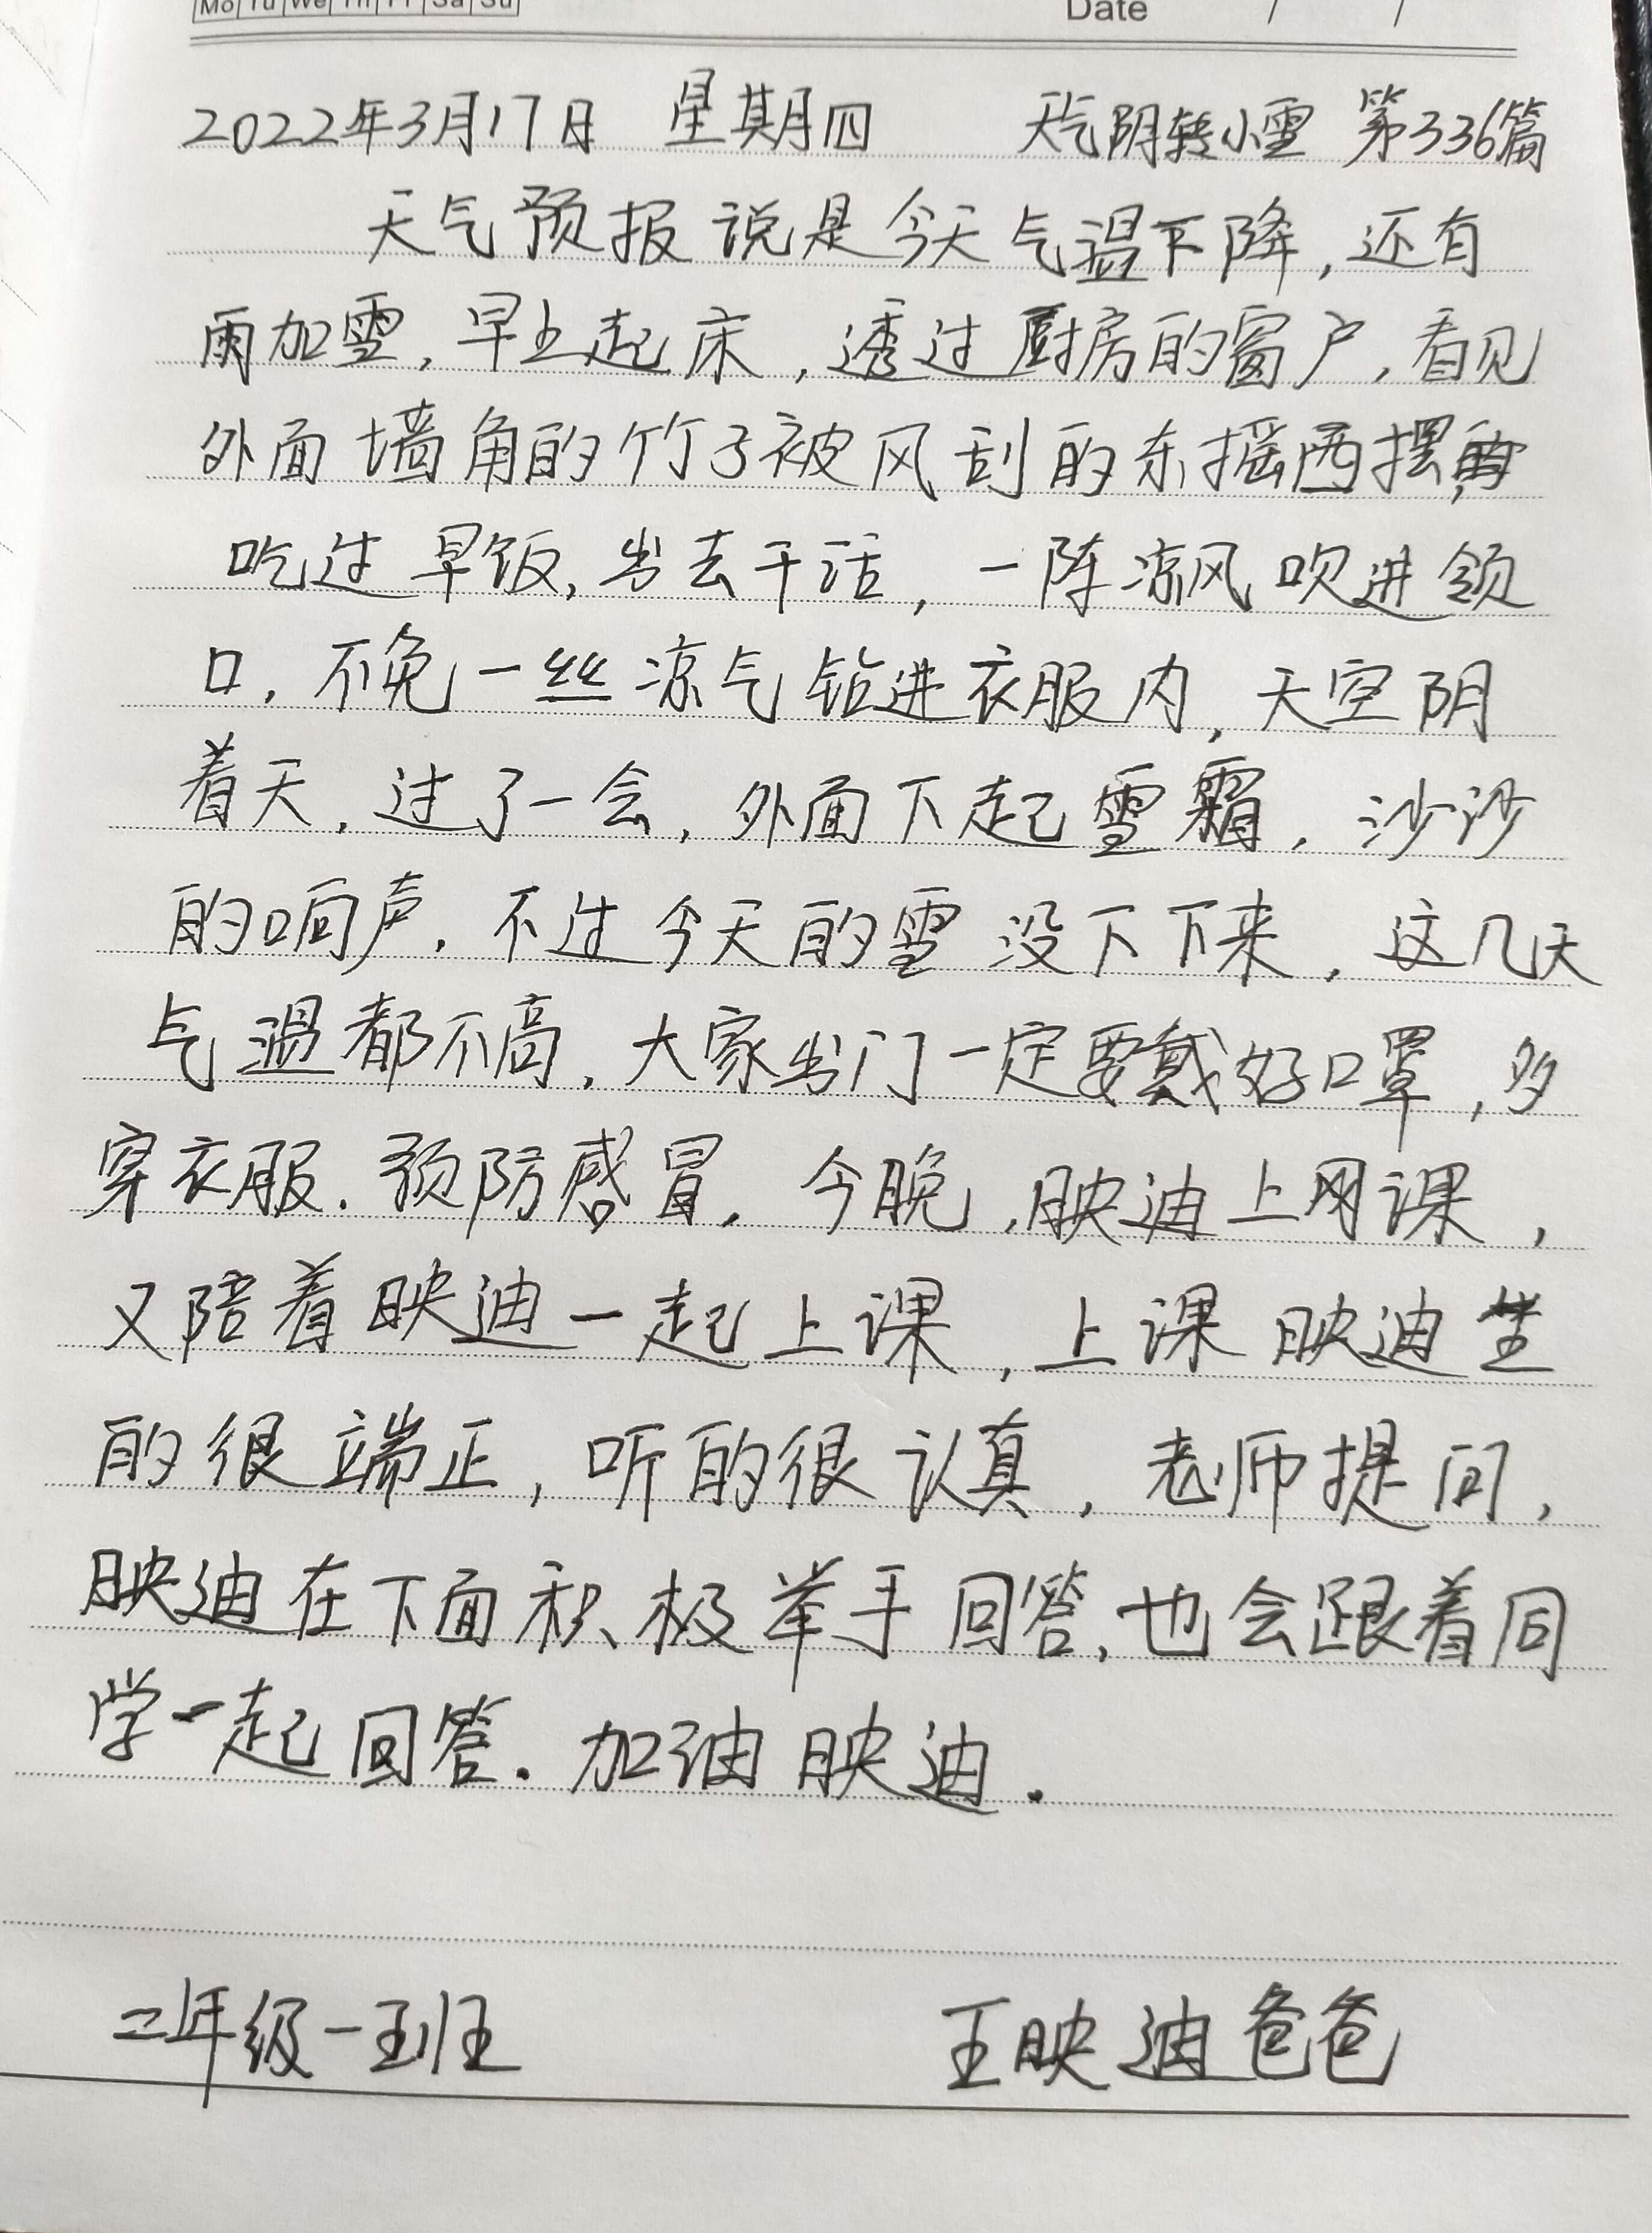 Mo Tu We Th Fr Sa Su
Date / /
2022年3月17日 星期四 天气阴转小雪 第336篇
天气预报说是今天气温下降,还有
雨加雪,早上起床,透过厨房的窗户,看见
外面墙角的竹子被风刮的东摇西摆,
吃过早饭,出去干活,一阵凉风吹进领
口,不免一丝凉气钻进衣服内,天空阴
着天,过了一会,外面下起雪霜,沙沙
的响声.不过今天的雪没下下来,这几天
气温都不高,大家出门一定要戴好口罩,多
穿衣服.预防感冒,今晚,映迪上网课,
又陪着映迪一起上课,上课映迪坐
的很端正,听的很认真,老师提问,
映迪在下面积极举手回答,也会跟着同
学一起回答.加油映迪.
二年级一班 王映迪爸爸